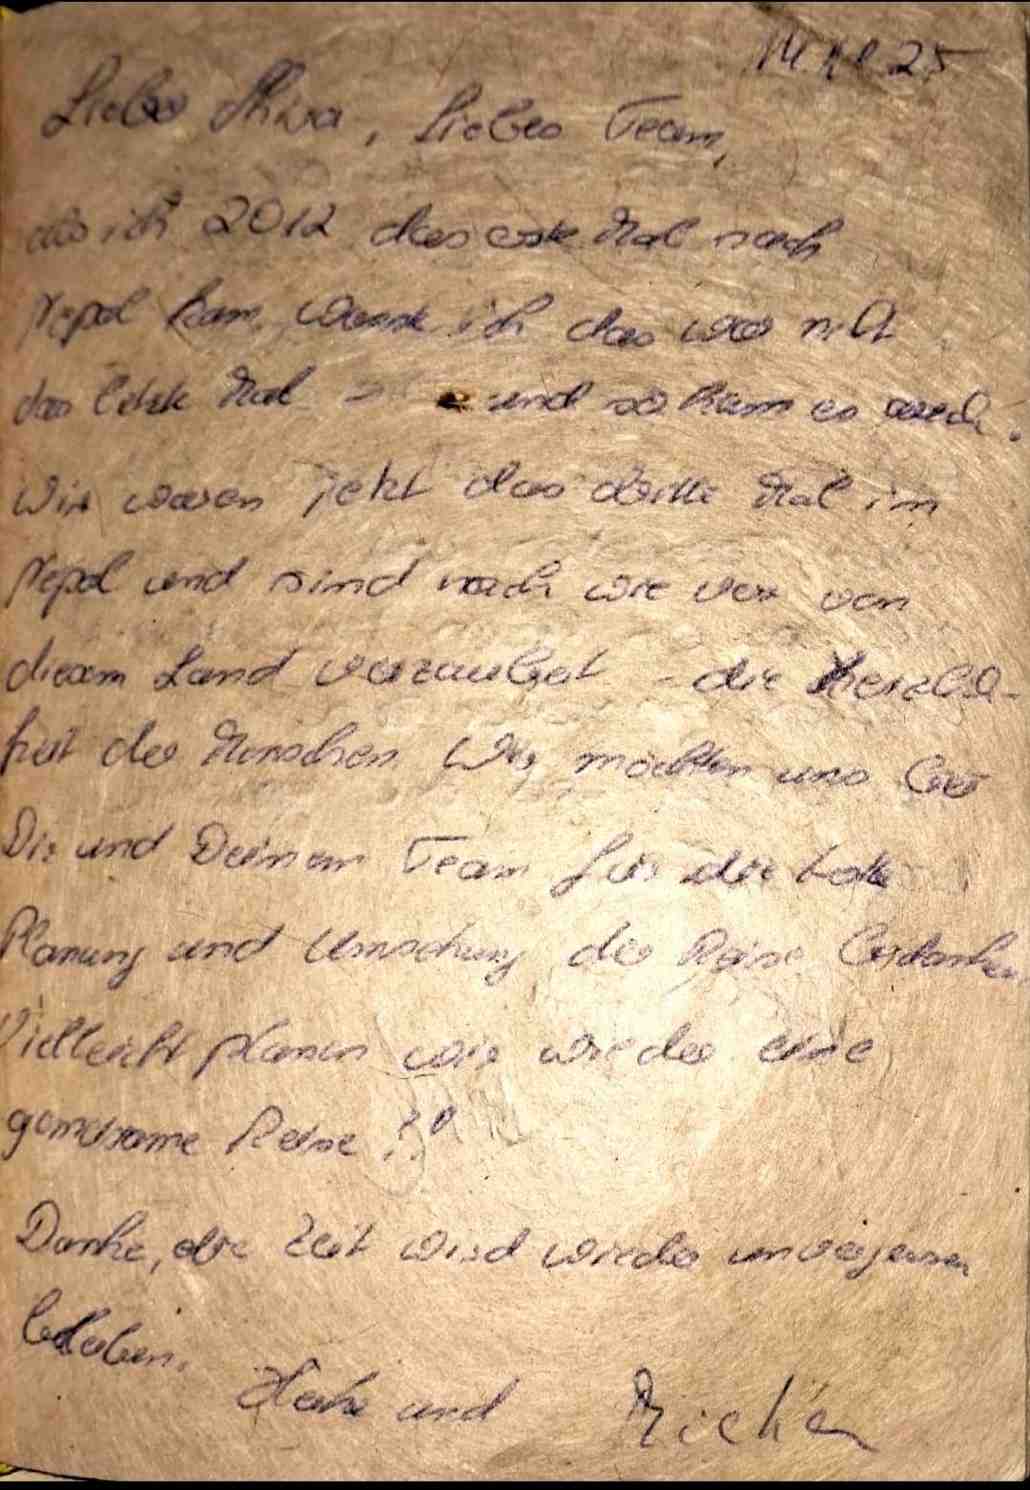 Lieber Shiva, liebes Team,
als ich 2012 das erste Mal nach
Nepal kam, wusste ich das war nicht
das letzte Mal - und so kam es auch.
Wir waren jetzt das dritte Mal in
Nepal und sind nach wie vor von
diesem Land verzaubert - die Herzlich-
keit der Menschen. Wir möchten uns bei
Dir und Deinem Team für die tolle
Planung und Umsetzung der Reise bedanken.
Vielleicht planen wir wieder eine
gemeinsame Reise !?
Danke, die Zeit wird wieder unvergessen
bleiben.
und